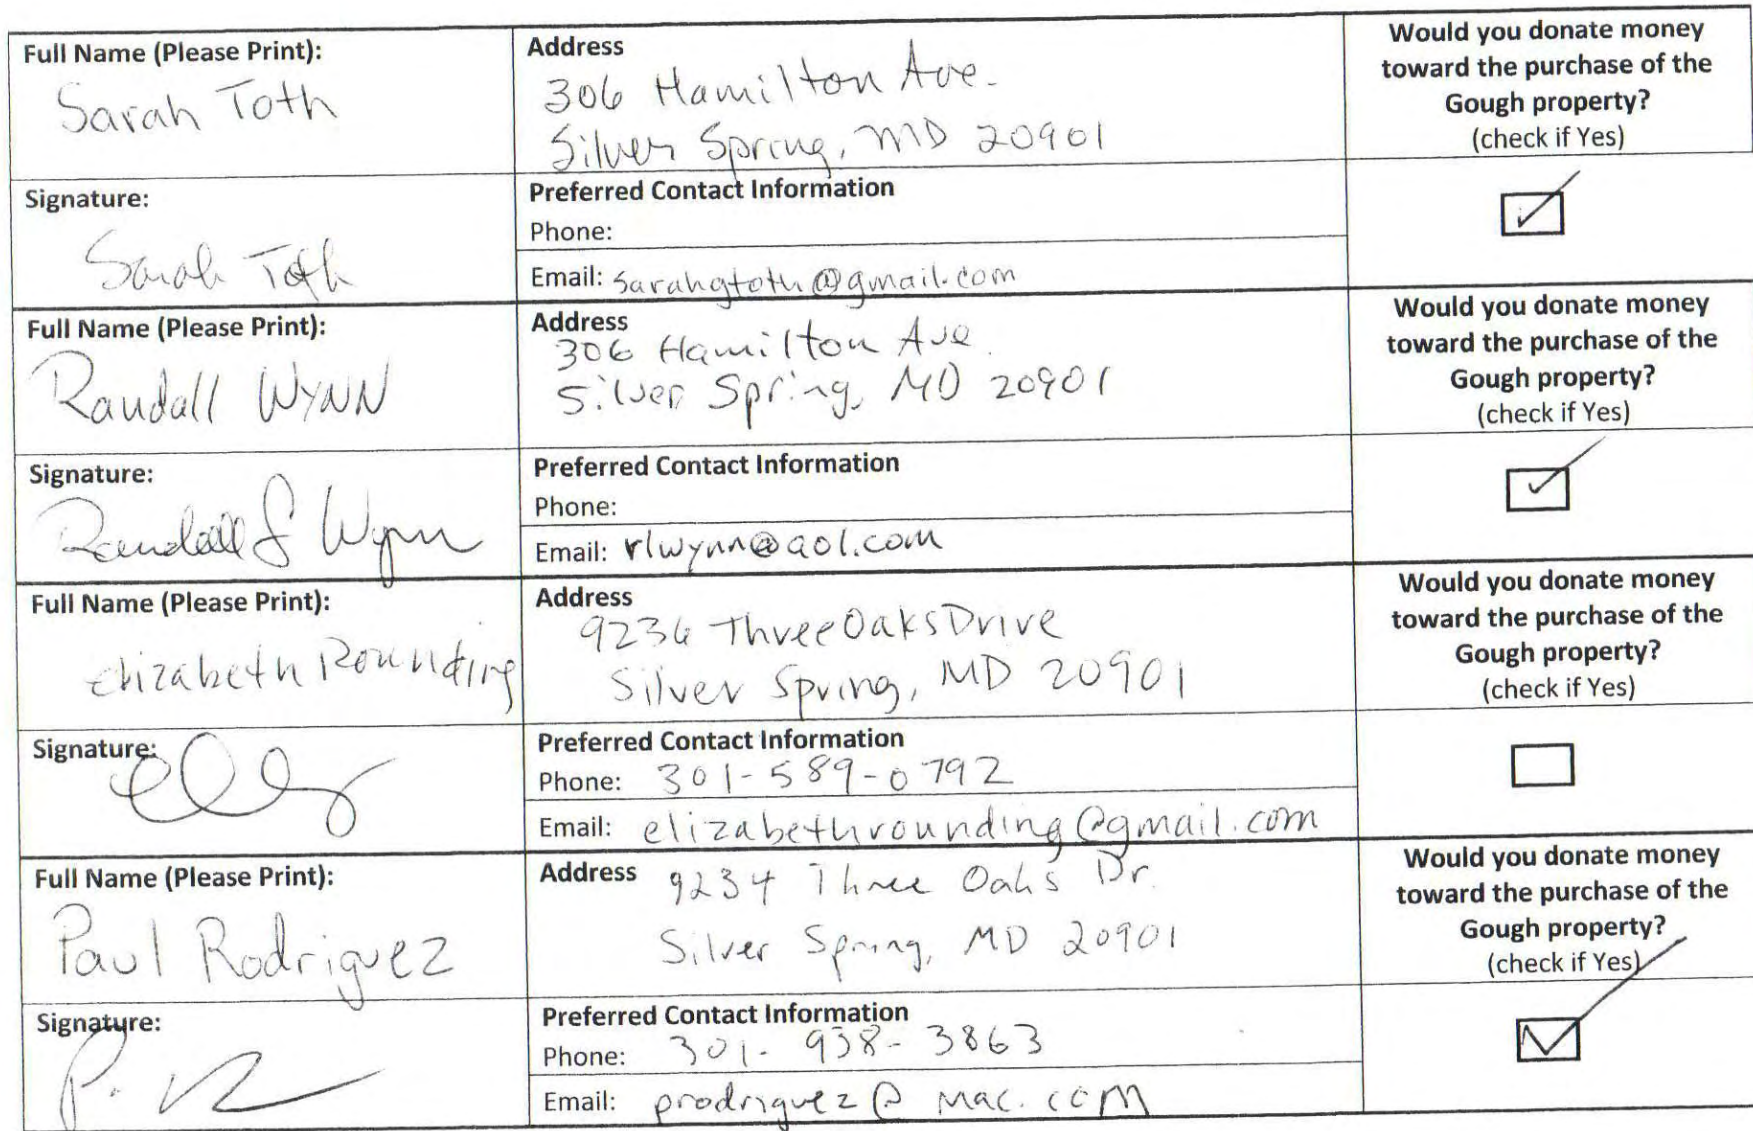 Full Name (Please Print):
Sarah Toth
Address
306 Hamilton Ave.
Silver Spring, MD 20901
Would you donate money
toward the purchase of the
Gough property?
(check if Yes)
Signature:
Sarah Toth
Preferred Contact Information
Phone:
Email: sarahgtoth@gmail.com
Full Name (Please Print):
Randall WYNN
Address
306 Hamilton Ave.
Silver Spring, MD 20901
Would you donate money
toward the purchase of the
Gough property?
(check if Yes)
Signature:
Randall L Wynn
Preferred Contact Information
Phone:
Email: rlwynn@aol.com
Full Name (Please Print):
Elizabeth Rounding
Address
9236 Three Oaks Drive
Silver Spring, MD 20901
Would you donate money
toward the purchase of the
Gough property?
(check if Yes)
Signature:
Preferred Contact Information
Phone: 301-589-0792
Email: elizabethrounding@gmail.com
Full Name (Please Print):
Paul Rodriguez
Address
9234 Three Oaks Dr.
Silver Spring, MD 20901
Would you donate money
toward the purchase of the
Gough property?
(check if Yes)
Signature:
Preferred Contact Information
Phone: 301-938-3863
Email: prodriguez@mac.com